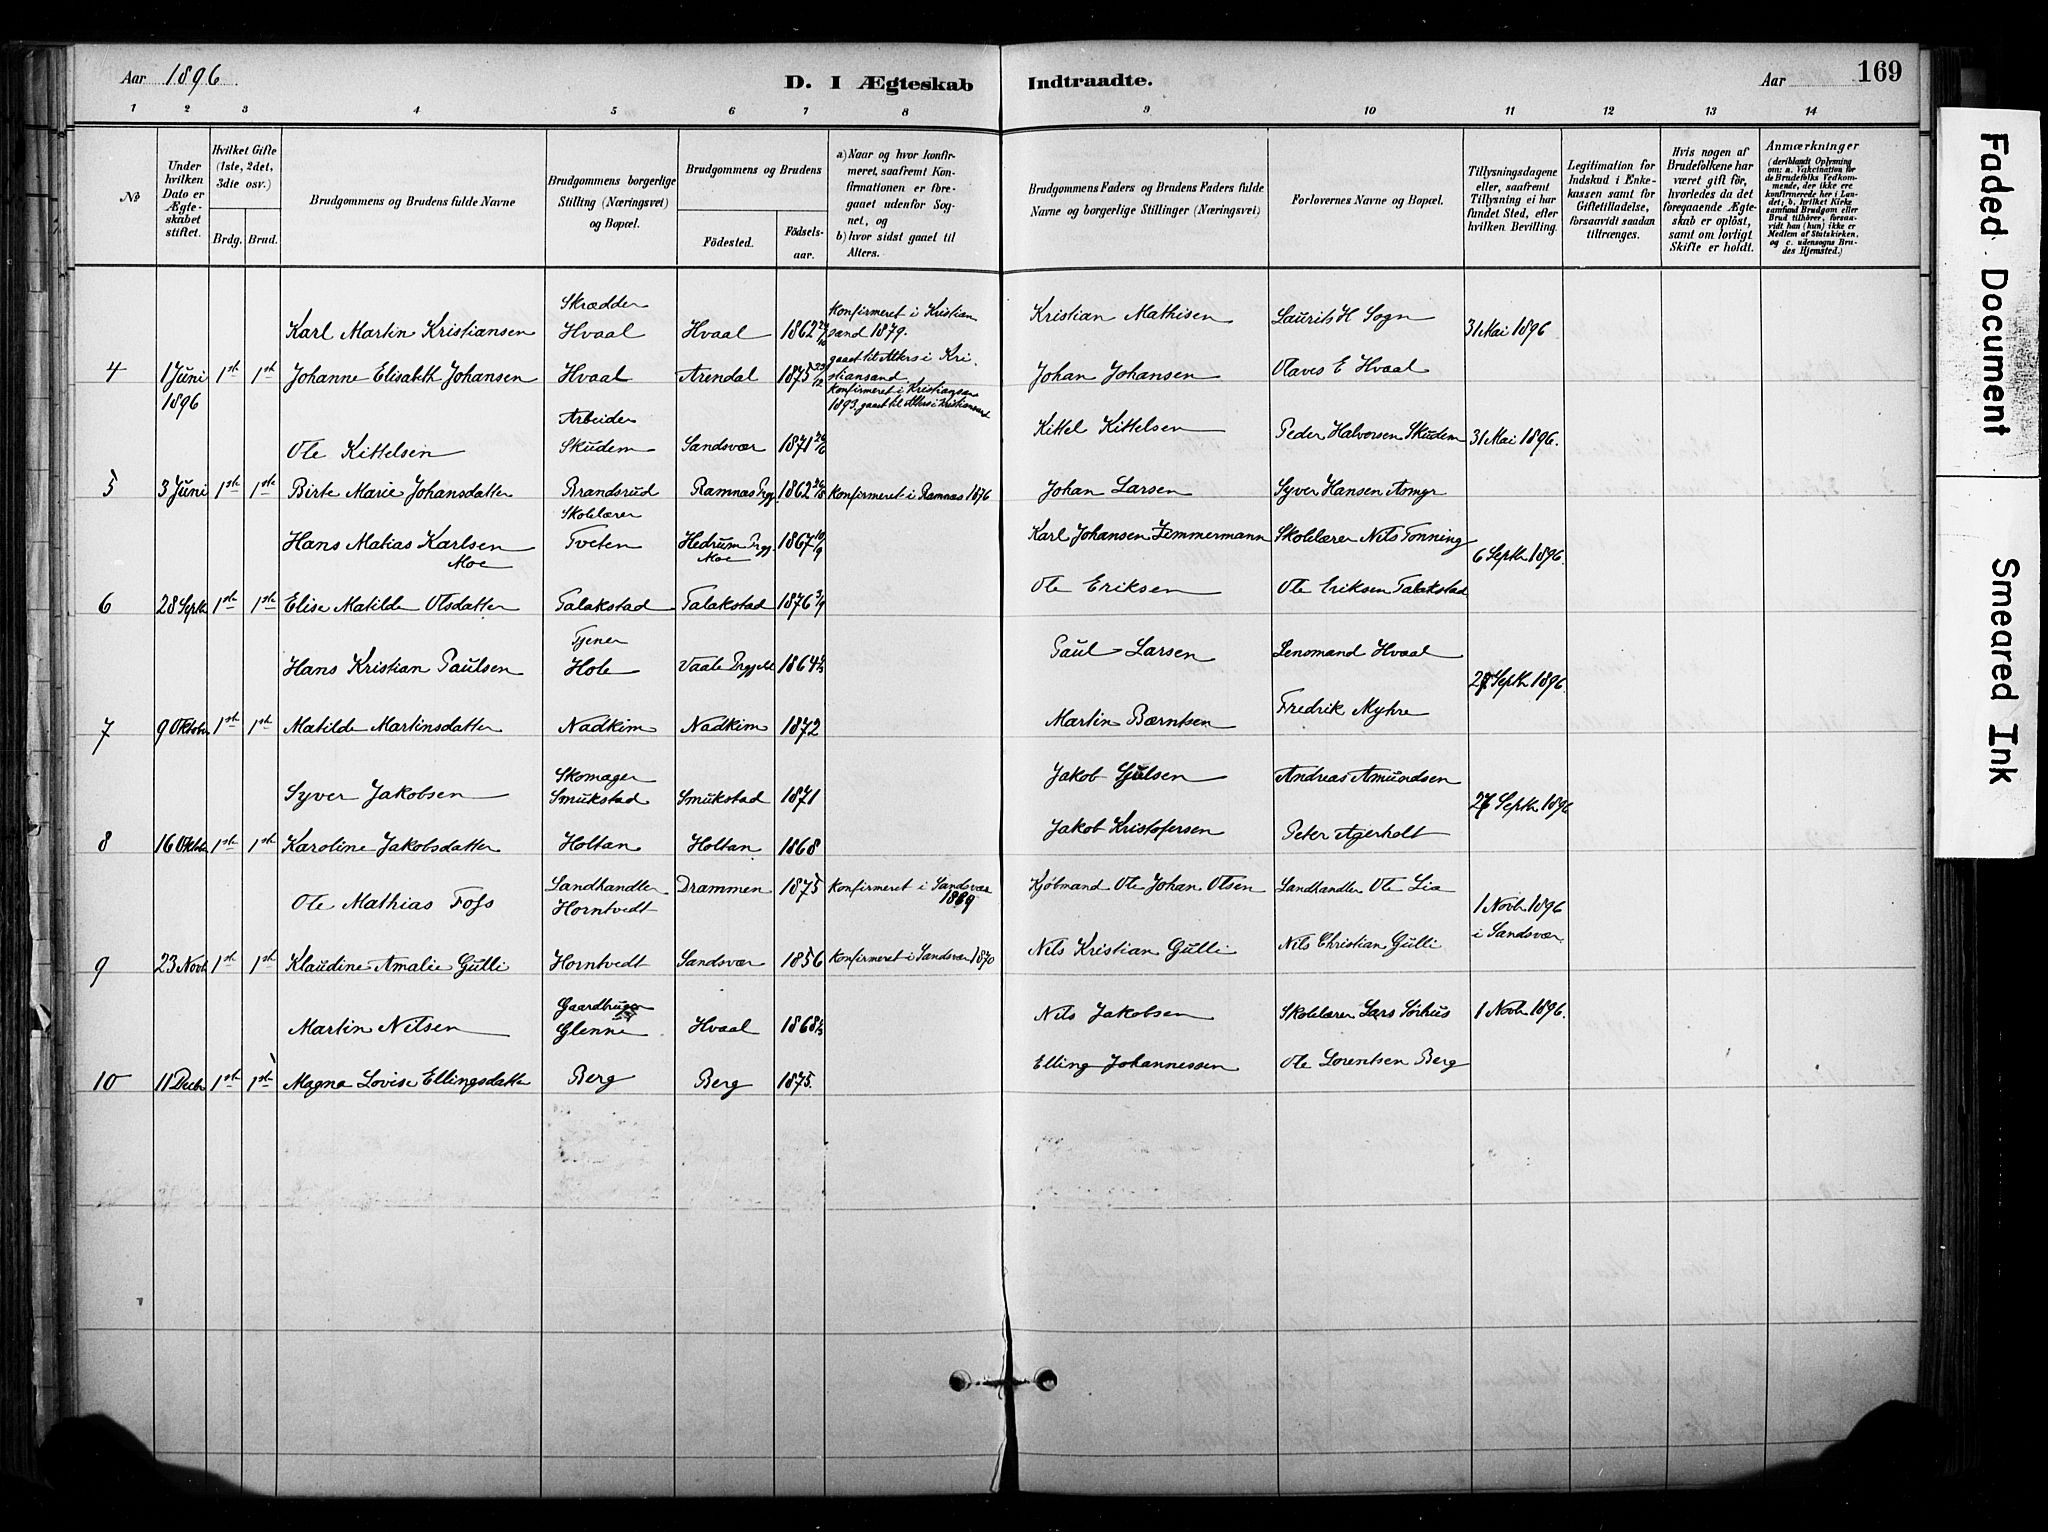 Aar 1896
D. I Ægteskab Indtraadte.
Aar
169
1 2 3 4 5 6 7 8 9 10 11 12 13 14
No
Under hvilken Dato er Ægteskabet stiftet.
Hvilket Gifte (1ste, 2det, 3die osv.)
Brdg. Brud.
Brudgommens og Brudens fulde Navne
Brudgommens borgerlige Stilling (Næringsvei) og Bopæl.
Brudgommens og Brudens
Födested.
Födselsaar.
a) Naar og hvor konfirmeret, saafremt Konfirmationen er foregaaet udenfor Sognet, og
b) hvor sidst gaaet til Alters.
Brudgommens Faders og Brudens Faders fulde Navne og borgerlige Stillinger (Næringsvei)
Forlovernes Navne og Bopæl.
Tillysningsdagene eller, saafremt Tillysning ei har fundet Sted, efter hvilken Bevilling.
Legitimation for Indskud i Enkekassen samt for Giftetilladelse, forsaavidt saadan tiltrænges.
Hvis nogen af Brudefolkene har været gift för, hvorledes da det foregaaende Ægteskab er oplöst, samt om lovligt Skifte er holdt.
Anmærkninger
(deriblandt Oplysning om: a. Vakcination for de Brudefolks Vedkommende, der ikke ere konfirmerede her i Landet; b. hvilket Kirkesamfund Brudgom eller Brud tilhörer, forsaavidt han (hun) ikke er Medlem af Statskirken, og c. udensogns Brudes Hjemsted.)
Karl Martin Kristiansen Skrædder Hvaal Hvaal 1862 konfirmeret i Kristiansand 1879. gaaet til Alters i Kristiansand Kristian Mathisen Laurits H Sogn 31 Mai 1896
4 1 Juni 1896 1ste 1ste Johanne Elisabeth Johansen Hvaal Arendal 1875 23/12 konfirmeret i Kristiansand 1893. gaaet til Alters i Kristiansand Johan Johansen Olaves E Hvaal
Ole Kittelsen Arbeider Skudem Sandsvær 1871 Kittel Kittelsen Peder Halvorsen Skudem 31 Mai 1896.
5 3 Juni 1ste 1ste Birte Marie Johansdatter Brandsrud Ramnæs Prgj. 1862 konfirmeret i Ramnæs 1876 Johan Larsen Syver Hansen
Hans Matias Karlsen Moe Skolelærer Tveten Hedrum Prgj. Moe 1867 10/9 Karl Johansen Zimmermann Skolelærer Nils Tonning 6 Septr 1896.
6 28 Septr 1ste 1ste Elise Matilde Olsdatter Talakstad Talakstad 1876 3/9 Ole Eriksen Ole Eriksen Talakstad
Hans Kristian Paulsen Tjener Hole Vaale Prgjeld 1864 Paul Larsen Lensmand Hvaal 27 Septr 1896.
7 9 Oktober 1ste 1ste Matilde Martinsdatter Nadkim Nadkim 1872 Martin Bærntsen Fredrik Myhre
Syver Jakobsen Skomager Smukstad Smukstad 1871 Jakob Gulsen Andreas Amundsen 27 Septr 1896
8 16 Oktbr 1ste 1ste Karoline Jakobsdatter Holtan Holtan 1868 Jakob Kristofersen Peter Agerholt
Ole Mathias Foss Landhandler Horntvedt Drammen 1875 konfirmeret i Sandsvær 1889 Kjøbmand Ole Johan Olsen Landhandler Ole Lia 1 Novbr 1896 i Sandsvær
9 23 Novbr 1ste 1ste Klaudine Amalie Gulli Horntvedt Sandsvær 1856 konfirmeret i Sandsvær 1870 Nils Kristian Gulli Nils Christian Gulli
Martin Nilsen Gaardbruger Glenne Hvaal 1868 Nils Jakobsen Skolelærer Lars Sørhus 1 Novbr 1896.
10 11 Decbr 1ste 1ste Magna Lovise Ellingsdatter Berg Berg 1875. Elling Johannessen Ole Lorentsen Berg
Faded Document
Smeared Ink